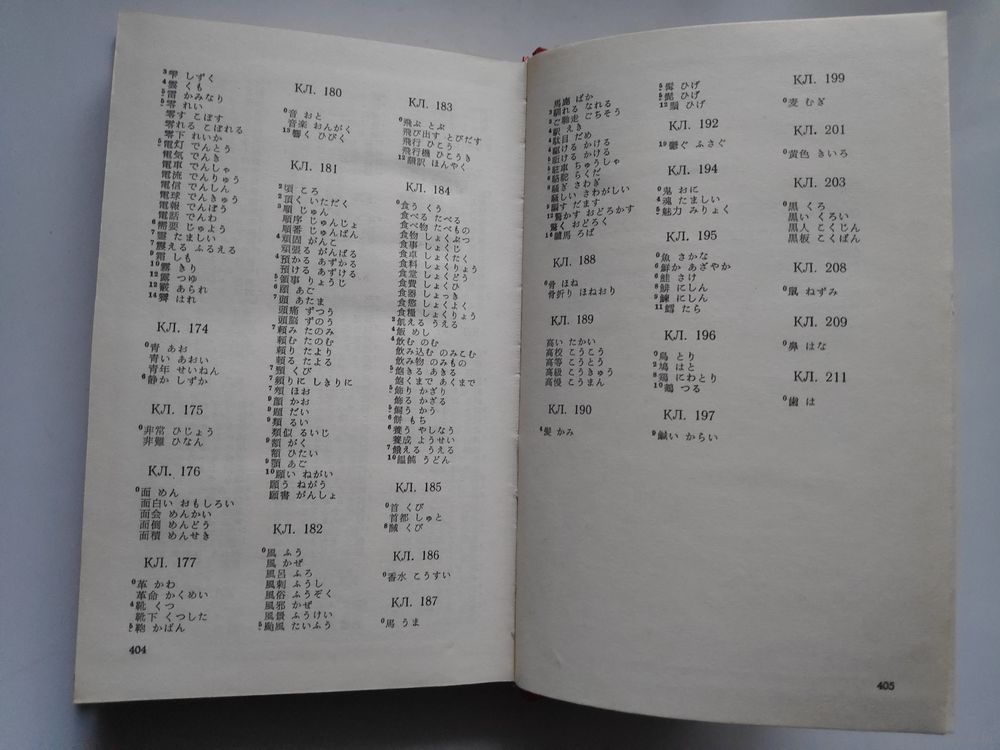 ³雫 しずく
⁴雲 くも
⁵雷 かみなり
⁵零 れい
零すこぼす
零れる こぼれる
零下 れいか
⁵電灯 でんとう
電気 でんき
電車 でんしゃ
電流 でんりゅう
電信 でんしん
電球 でんきゅう
電報 でんぽう
電話 でんわ
⁶需要 じゅよう
⁷霊 たましい
⁷震える ふるえる
⁹霜 しも
¹⁰霧 きり
¹²露 つゆ
¹²霰 あられ
¹⁴霽 はれ
КЛ. 174
⁰青 あお
青い あおい
青年 せいねん
⁶静か しずか
КЛ. 175
⁰非常 ひじょう
非難 ひなん
КЛ. 176
⁰面 めん
面白い おもしろい
面会 めんかい
面倒 めんどう
面積 めんせき
КЛ. 177
⁰革 かわ
革命 かくめい
⁴靴 くつ
靴下 くつした
⁵鞄 かばん
404
КЛ. 180
⁰音 おと
音楽 おんがく
¹³響く ひびく
КЛ. 181
²頃 ころ
²頂く いただく
³順 じゅん
順序 じゅんじょ
順番 じゅんばん
⁴頑固 がんこ
頑張る がんばる
⁴預かる あずかる
預ける あずける
⁵領事 りょうじ
⁶頤 あご
⁷頭 あたま
頭痛 ずつう
頭脳 ずのう
⁷頼み たのみ
頼む たのむ
頼り たより
頼る たよる
⁷頸 くび
⁷頻りに しきりに
⁷頬 ほお
⁹顔 かお
⁹題 だい
⁹類 るい
類似 るいじ
⁹額 がく
額 ひたい
⁹顎 あご
¹⁰願い ねがい
願う ねがう
願書 がんしょ
КЛ. 182
⁰風 ふう
風 かぜ
風呂 ふろ
風刺 ふうし
風俗 ふうぞく
風邪 かぜ
風景 ふうけい
⁵颱風 たいふう
КЛ. 183
⁰飛ぶ とぶ
飛び出す とびだす
飛行 ひこう
飛行機 ひこうき
¹²飜訳 ほんやく
КЛ. 184
⁰食う くう
食べる たべる
食べ物 たべもの
食物 しょくぶつ
食事 しょくじ
食卓 しょくたく
食料 しょくりょう
食堂 しょくどう
食費 しょくひ
食器 しょっき
食慾 しょくよく
食糧 しょくりょう
²飢える うえる
⁴飯 めし
⁴飲む のむ
飲み込む のみこむ
飲み物 のみもの
⁵飽きる あきる
飽くまで あくまで
⁵飾り かざり
飾る かざる
⁵飼う かう
⁶餅 もち
⁶養う やしなう
養成 ようせい
⁷餓える うえる
¹⁰饂飩 うどん
КЛ. 185
⁰首 くび
首都 しゅと
⁸馘 くび
КЛ. 186
⁰香水 こうすい
КЛ. 187
⁰馬 うま
馬鹿 ばか
³馴れる なれる
³ご馳走 ごちそう
⁴駅 えき
⁴駄目 だめ
⁴駆ける かける
⁵駈ける かける
⁵駐車 ちゅうしゃ
⁶駱駝 らくだ
⁸騒ぎ さわぎ
騒しい さわがしい
⁹騙す だます
¹²驚かす おどろかす
驚く おどろく
¹⁴驢馬 ろば
КЛ. 188
⁰骨 ほね
骨折り ほねおり
КЛ. 189
高い たかい
高校 こうこう
高等 こうとう
高級 こうきゅう
高慢 こうまん
КЛ. 190
⁴髪 かみ
⁵髯 ひげ
⁵髭 ひげ
¹²鬚 ひげ
КЛ. 192
¹⁹鬱ぐ ふさぐ
КЛ. 194
⁰鬼 おに
⁴魂 たましい
⁵魅力 みりょく
КЛ. 195
⁰魚 さかな
⁶鮮か あざやか
⁶鮭 さけ
⁸鯡 にしん
⁹鰊 にしん
¹¹鱈 たら
КЛ. 196
⁰鳥 とり
²鳩 はと
⁸鶏 にわとり
¹⁰鶴 つる
КЛ. 197
⁹鹹い からい
КЛ. 199
⁰麦 むぎ
КЛ. 201
⁰黄色 きいろ
КЛ. 203
⁰黒 くろ
黒い くろい
黒人 こくじん
黒板 こくばん
КЛ. 208
⁰鼠 ねずみ
КЛ. 209
⁰鼻 はな
КЛ. 211
⁰歯 は
405